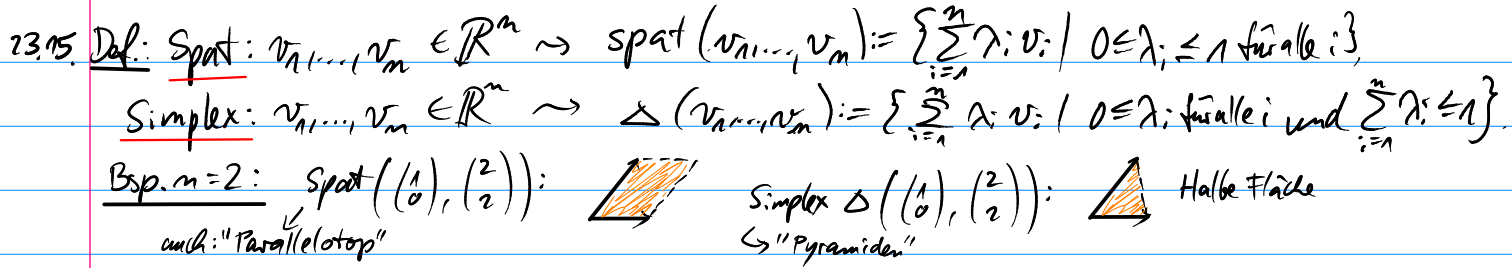 23.15. Def.: Spat: v₁,...,vₙ ∈ ℝⁿ ⇝ spat(v₁,...,vₙ) := {∑ᵢ₌₁ⁿ λᵢ vᵢ | 0 ≤ λᵢ ≤ 1 für alle i},
Simplex: v₁,...,vₙ ∈ ℝⁿ ⇝ Δ(v₁,...,vₙ) := {∑ᵢ₌₁ⁿ λᵢ vᵢ | 0 ≤ λᵢ für alle i und ∑ᵢ₌₁ⁿ λᵢ ≤ 1}.
Bsp. n=2: Spat((1 0), (2 2)): Simplex Δ((1 0), (2 2)): Halbe Fläche
auch: "Parallelotop" ↳ "Pyramiden"